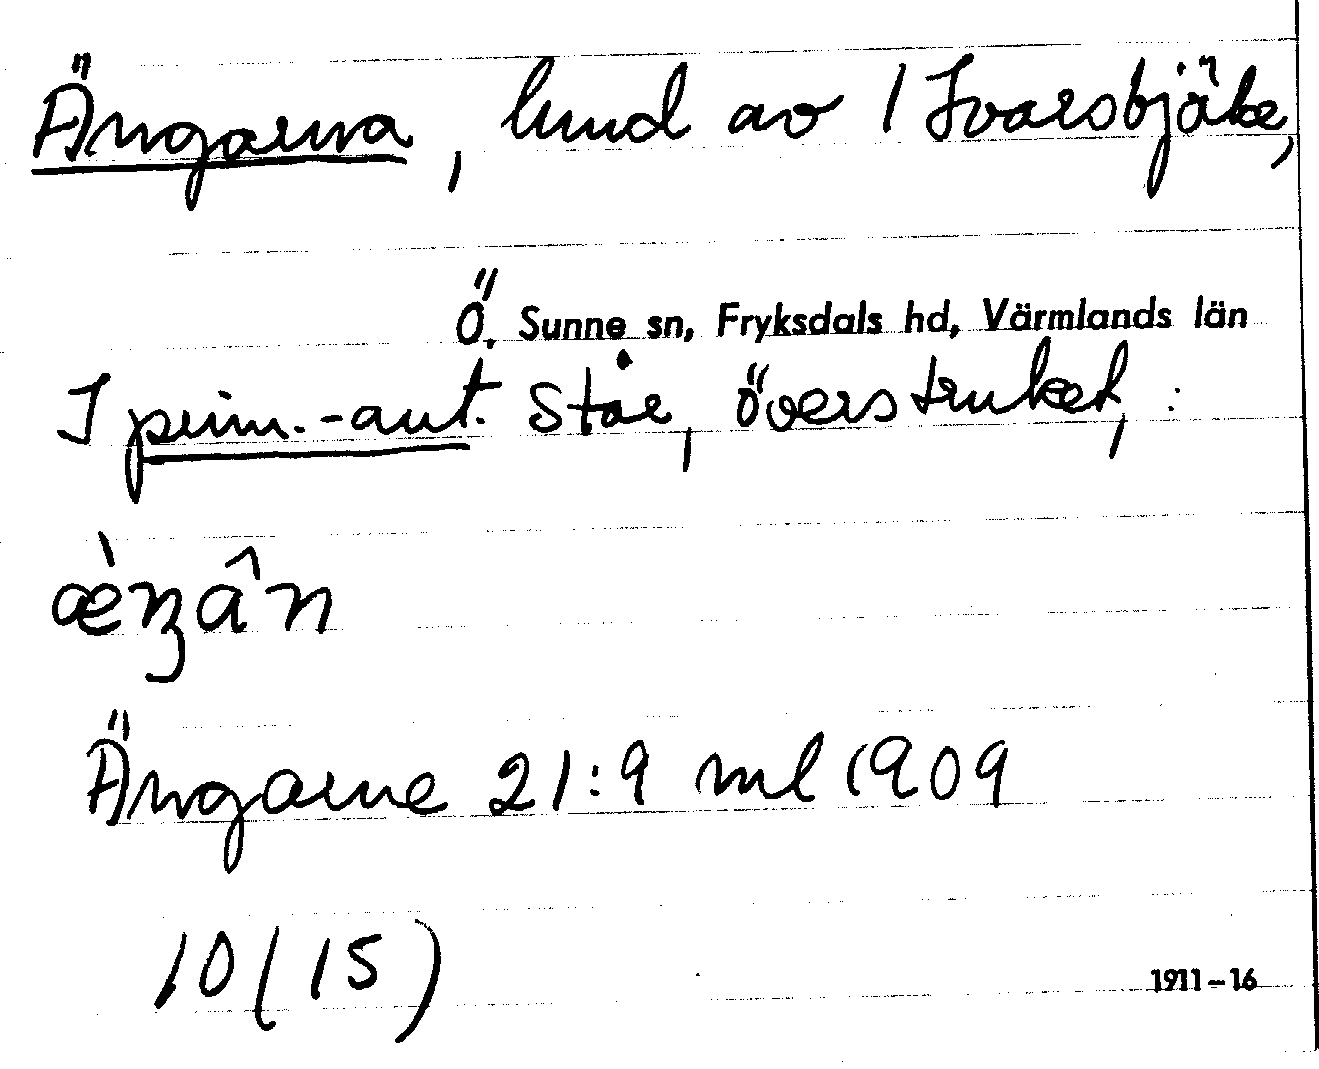 Ängarna, hmd av 1 Ivarsbjöke,
Ö. Sunne sn, Fryksdals hd, Värmlands län
I prim.-ant. står, överstruket, :
æ̀ŋân
Ängarne 21:9 ml 1909
10 (15)
1911–16